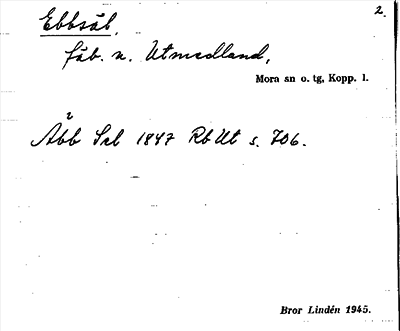 Ebbsäl.
2.
fäb. n. Utmedland,
Mora sn o. tg, Kopp. l.
Åbb Sel 1847 Rb Ut s. 706.
Bror Lindén 1945.